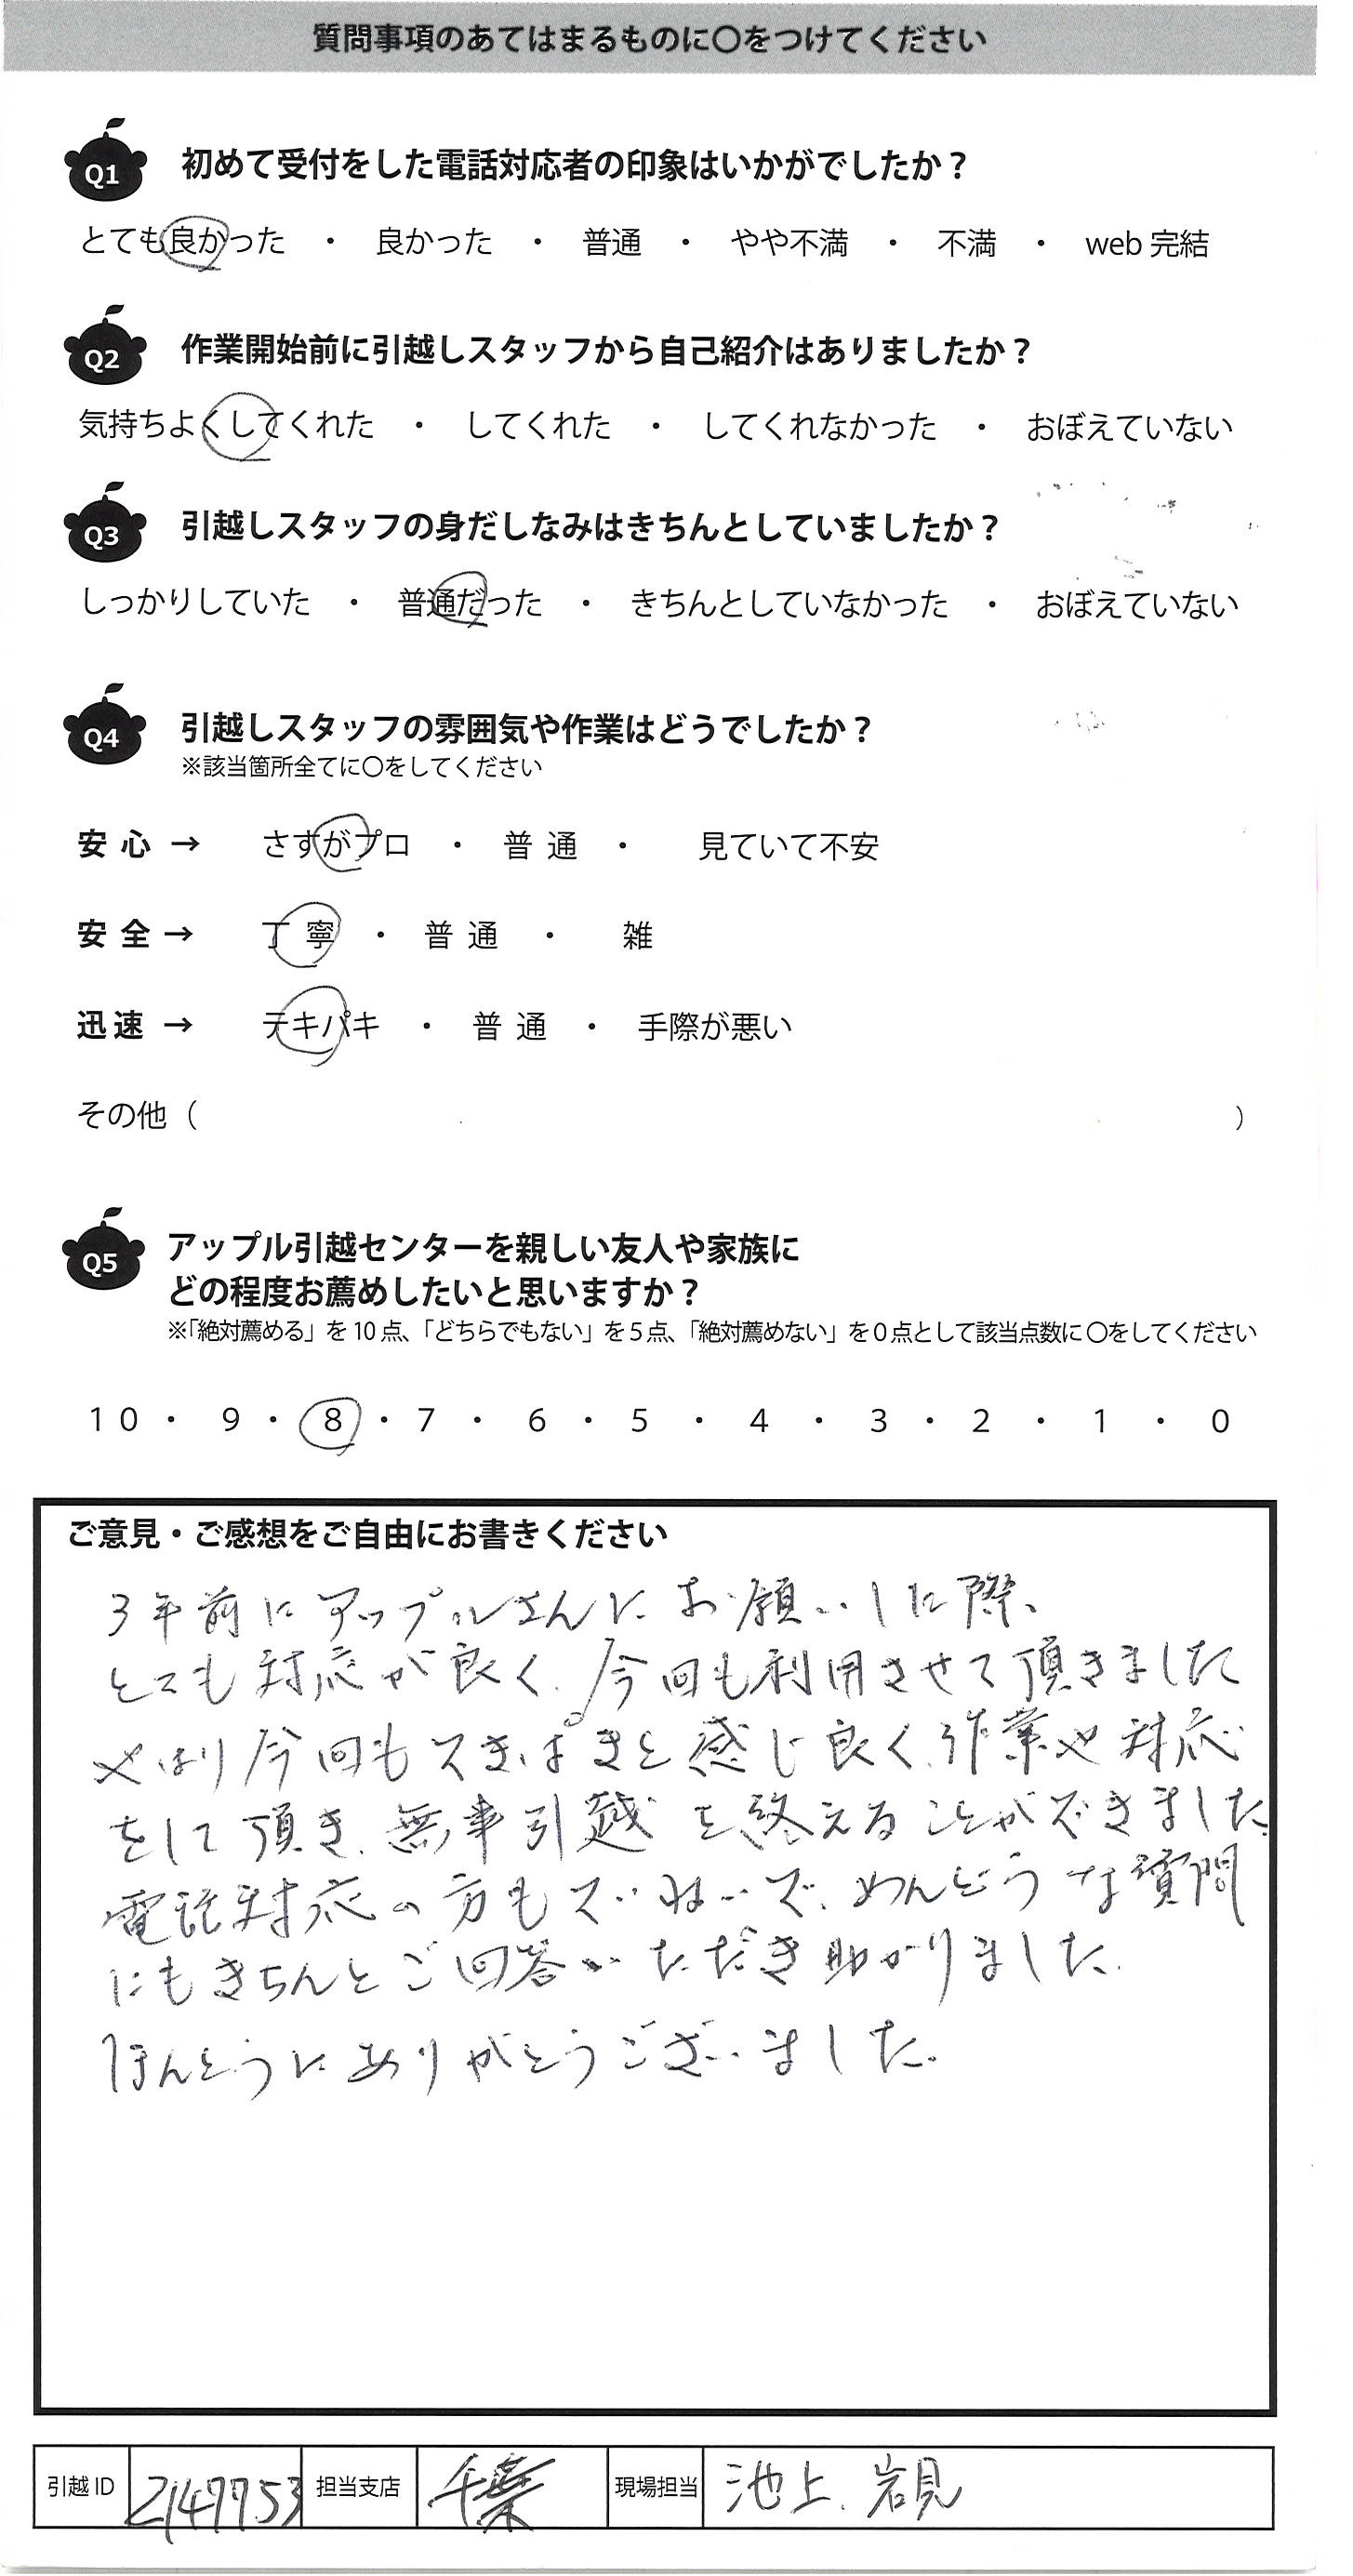 質問事項のあてはまるものに〇をつけてください
Q1 初めて受付をした電話対応者の印象はいかがでしたか？
とても良かった ・ 良かった ・ 普通 ・ やや不満 ・ 不満 ・ web 完結
Q2 作業開始前に引越しスタッフから自己紹介はありましたか？
気持ちよくしてくれた ・ してくれた ・ してくれなかった ・ おぼえていない
Q3 引越しスタッフの身だしなみはきちんとしていましたか？
しっかりしていた ・ 普通だった ・ きちんとしていなかった ・ おぼえていない
Q4 引越しスタッフの雰囲気や作業はどうでしたか？
※該当箇所全てに〇をしてください
安心 → さすがプロ ・ 普通 ・ 見ていて不安
安全 → 丁寧 ・ 普通 ・ 雑
迅速 → テキパキ ・ 普通 ・ 手際が悪い
その他（ ）
Q5 アップル引越センターを親しい友人や家族に
どの程度お薦めしたいと思いますか？
※「絶対薦める」を10点、「どちらでもない」を5点、「絶対薦めない」を0点として該当点数に〇をしてください
10 ・ 9 ・ 8 ・ 7 ・ 6 ・ 5 ・ 4 ・ 3 ・ 2 ・ 1 ・ 0
ご意見・ご感想をご自由にお書きください
3年前にアップルさんにお願いした際、
とても対応が良く、今回も利用させて頂きました
やはり今回もてきぱきと感じ良く、作業や対応
をして頂き、無事引越を終えることができました。
電話対応の方もていねいで、めんどうな質問
にもきちんとご回答いただき助かりました。
ほんとうにありがとうございました。
引越ID 2147753 担当支店 千葉 現場担当 池上、岩見